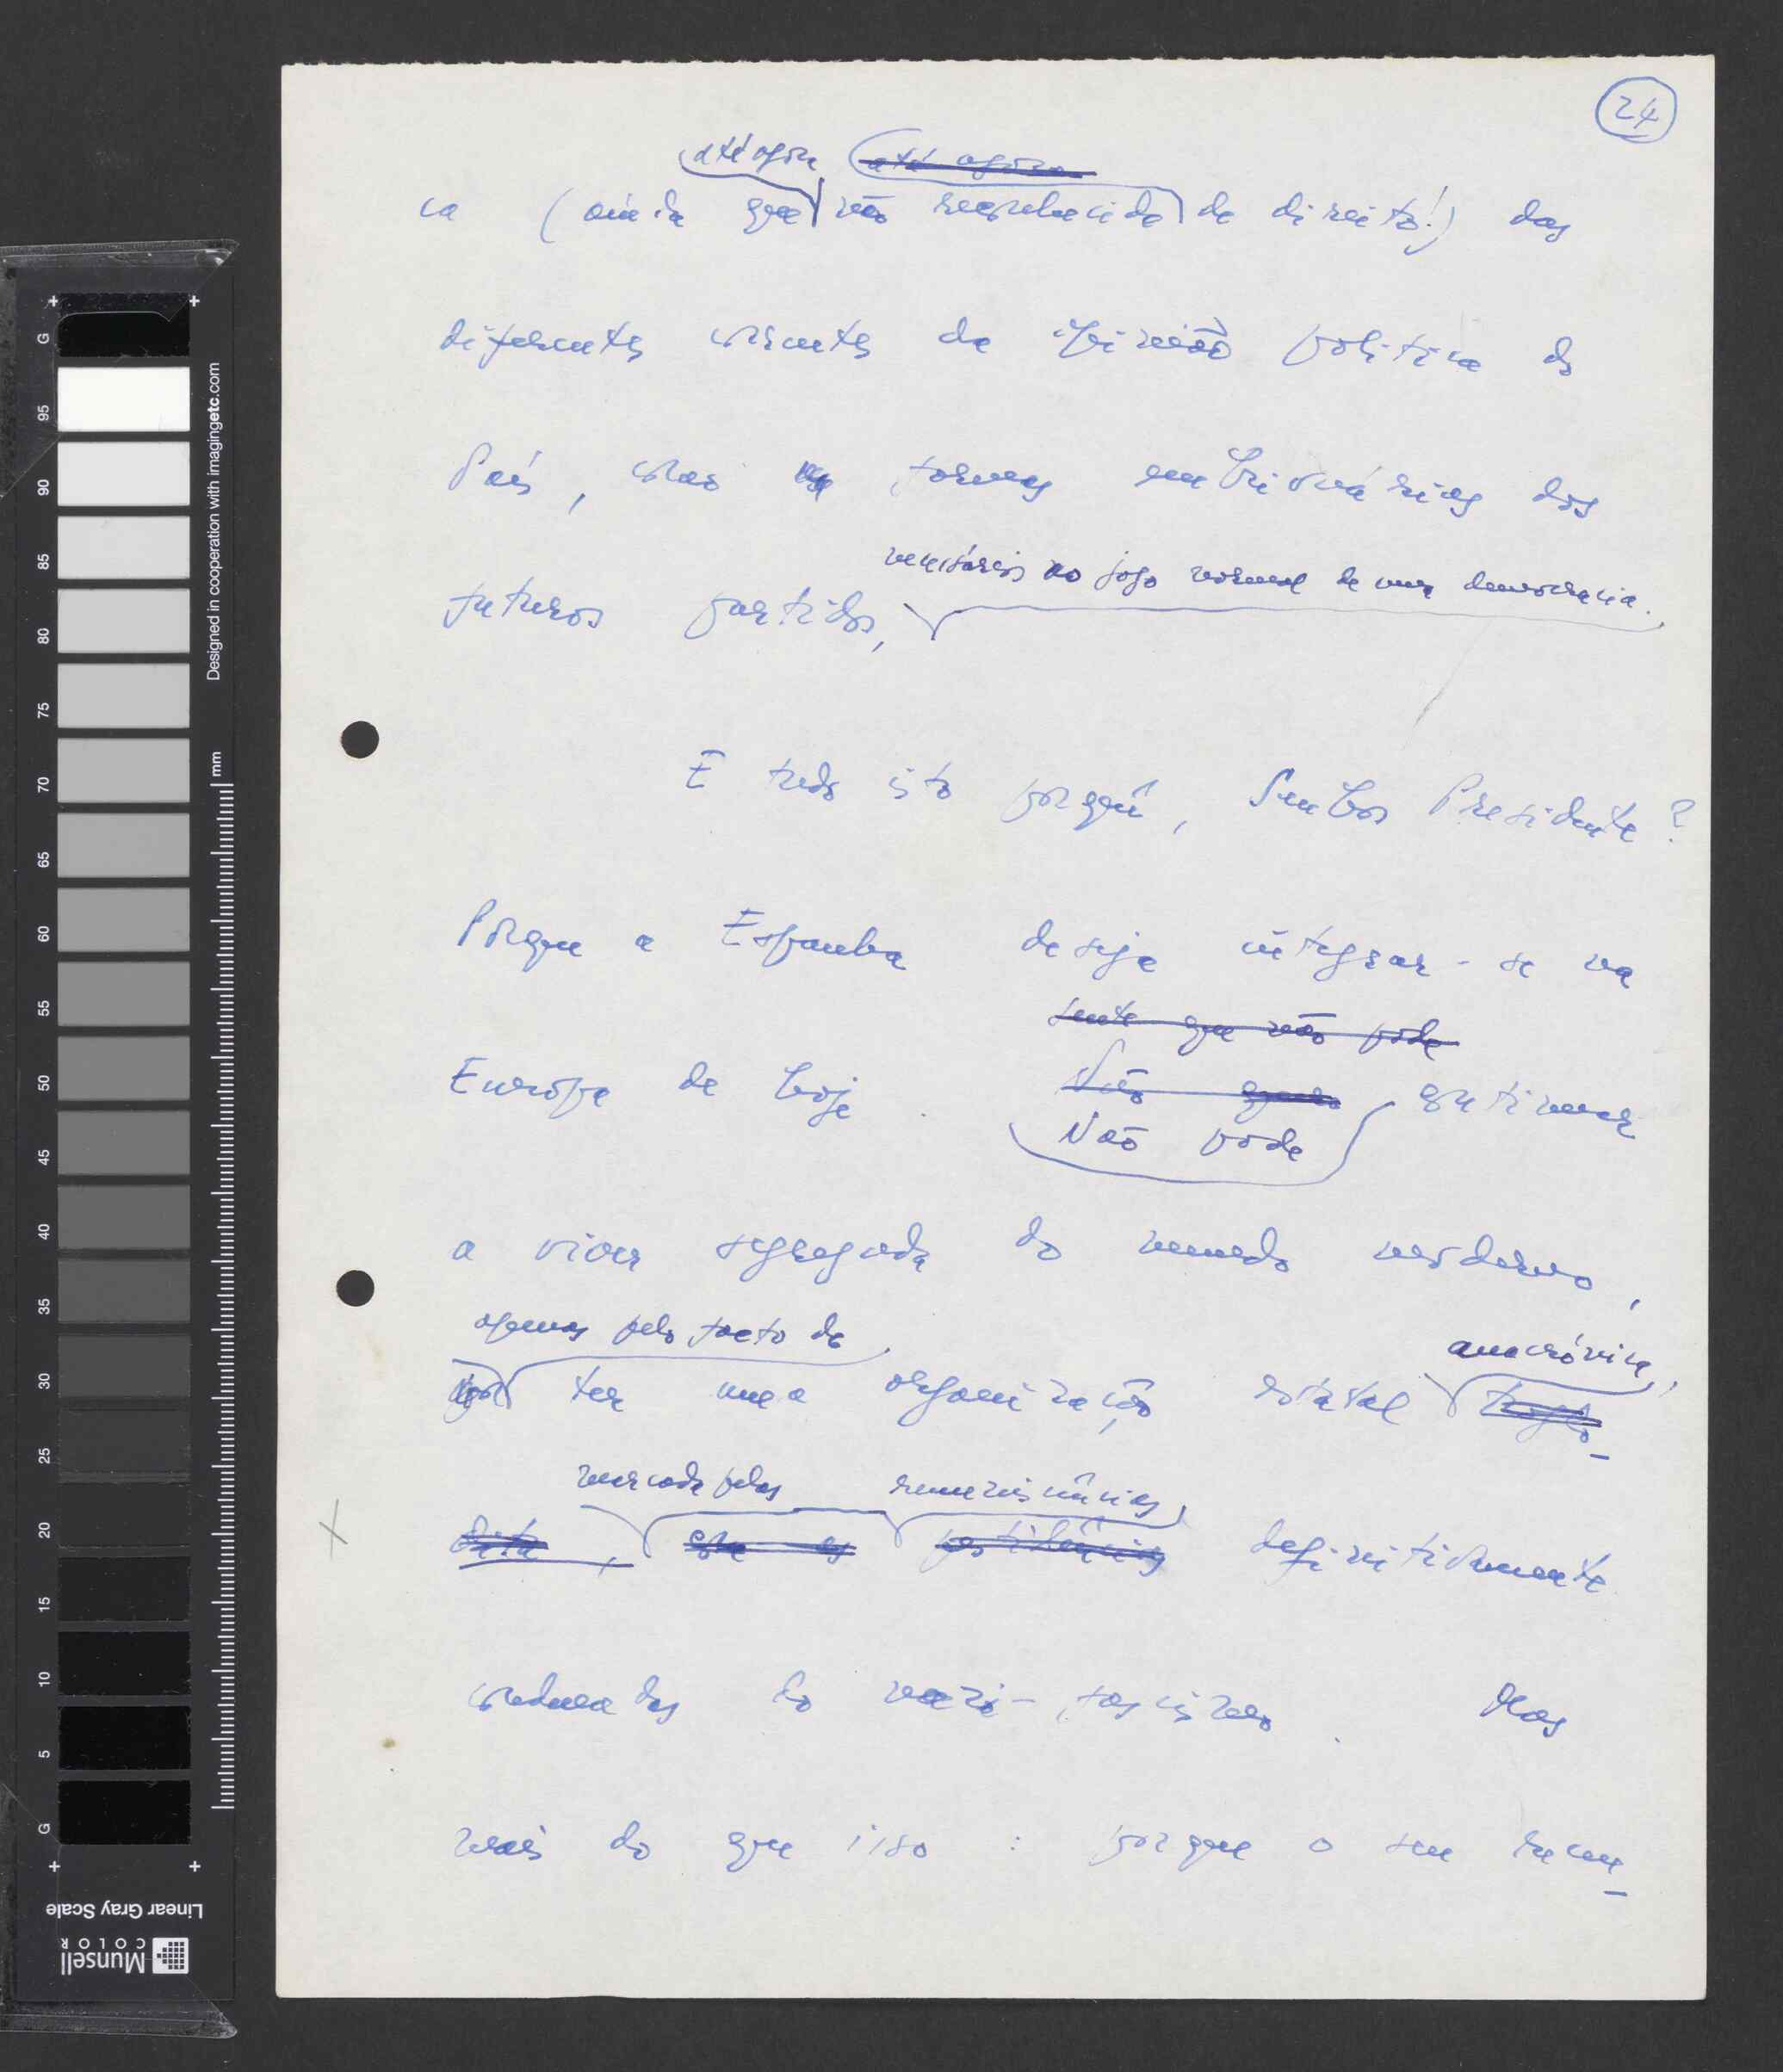 24
até agora até agora
ca (ainda que não reconhecida de direito!) das
diferentes correntes da opinião política do
País, como formas embrionárias dos
necessários ao jogo normal de uma democracia.
futuros partidos,
E tudo isto porquê, Senhor Presidente?
Porque a Espanha deseja integrar-se na
sente que não pode
Europa de hoje. Não quer continuar
Não pode
a viver segregada do mundo moderno,
apenas pelo facto de anacrónica,
por ter uma organização estatal troglo-
marcada pelas reminiscências
dita, com as pestilências definitivamente
condenadas do nazi-fascismo. Mas
mais do que isso: porque o seu
Designed in cooperation with imagingetc.com
mm
G
95
90
85
80
75
70
65
60
55
50
45
40
35
30
25
20
15
10
5
G
Linear Gray Scale
Munsell
COLOR